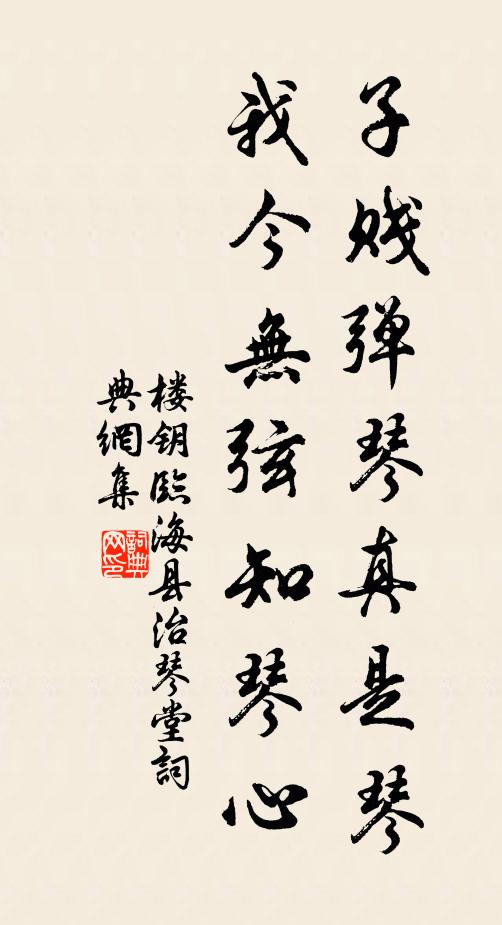 子贱弹琴真是琴
我今無弦知琴心
楼钥臨海县治琴堂詞
典網集
詞典
网印